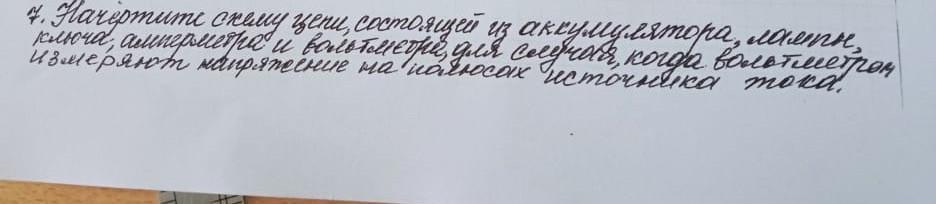 7. Начертите схему цепи, состоящей из аккумулятора, лампы,
ключа, амперметра и вольтметра, для случая, когда вольтметром
измеряют напряжение на полюсах источника тока.